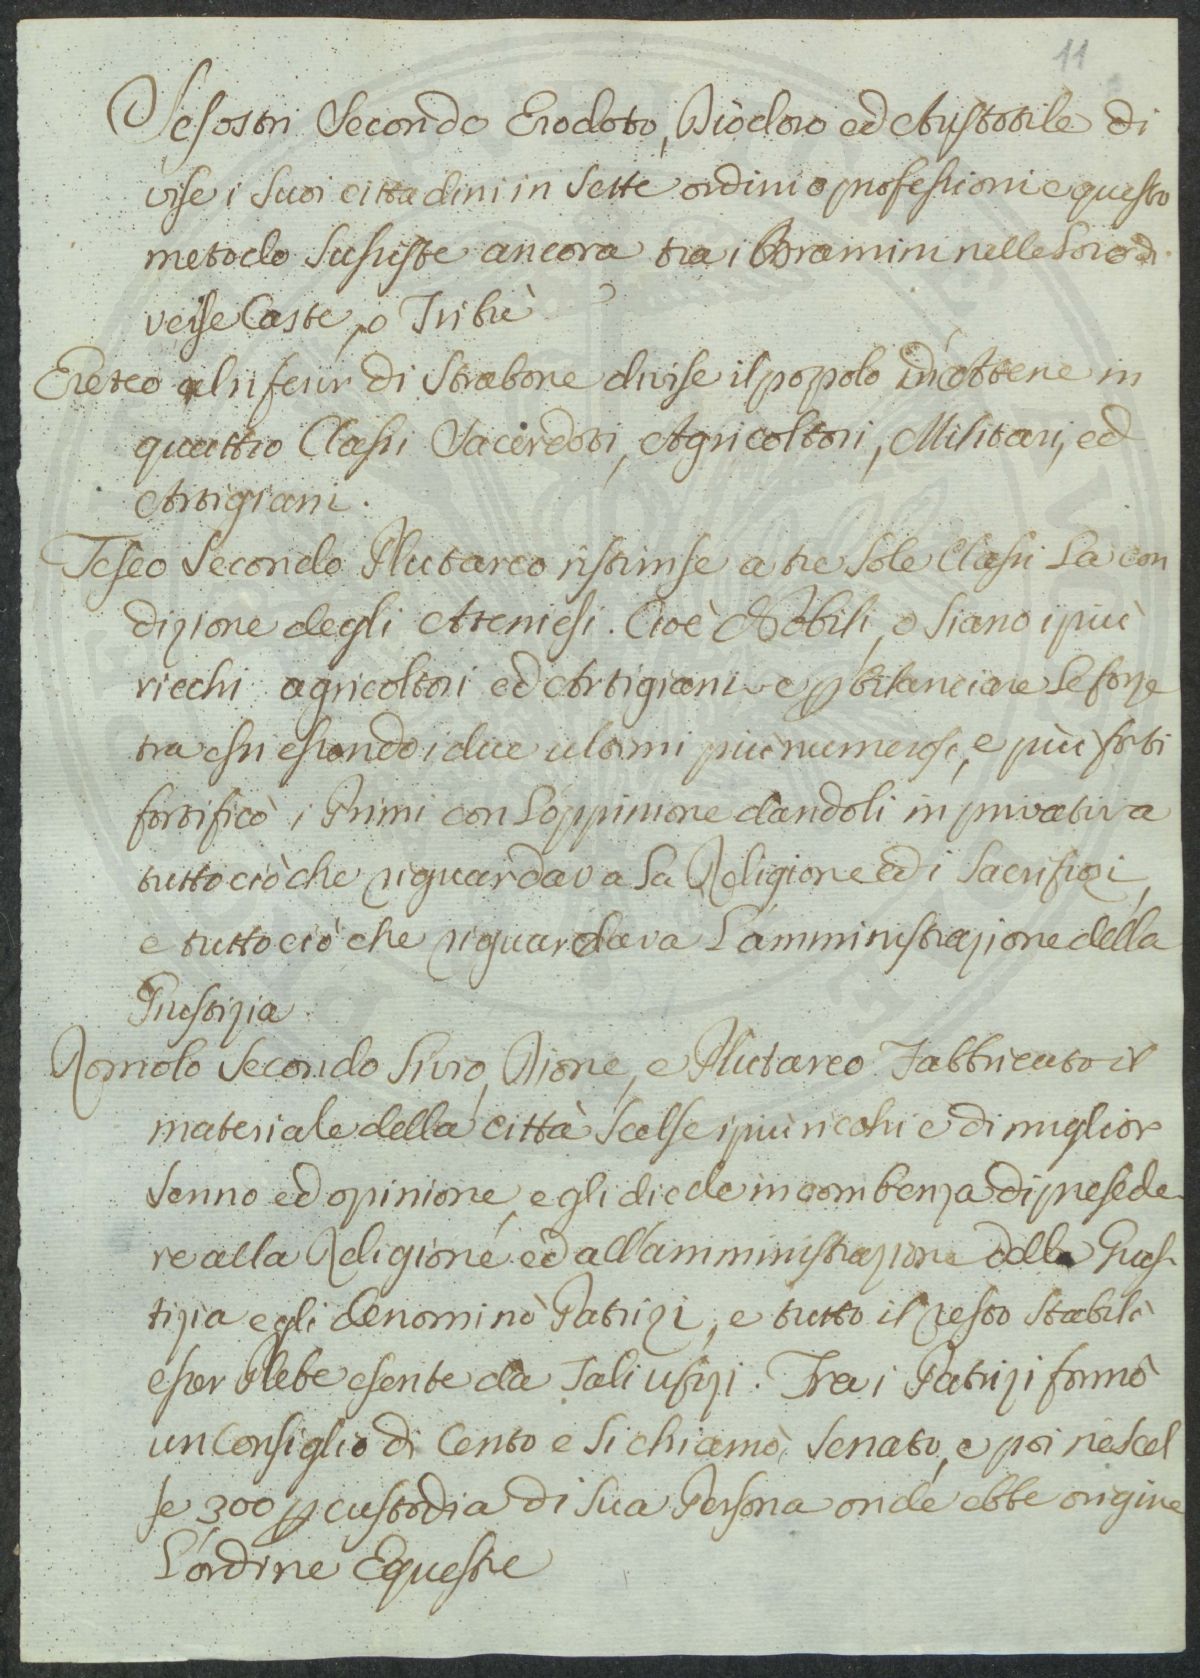 11
Sesostri Secondo Erodoto, Diodoro ed Aristotile di
vise i Suoi cittadini in Sette ordini o professioni e questo
metodo Susiste ancora tra i Bramini nelle Loro di
verse Caste, o Tribù
Ereteo al riferir di Strabone divise il popolo in Attene in
quattro Classi Sacerdoti, Agricoltori, Militari, ed
Artigiani.
Teseo Secondo Plutarco ristrinse a tre Sole Classi La con
dizione degli Ateniesi. Cioè Nobili, o siano i più
ricchi agricoltori ed Artigiani e p bilanciare Le forze
tra essi essendo i due ultimi più numerosi, e più forti
fortificò i Primi con L'oppinione dandoli in privativa
tutto ciò che riguardava La Religione ed i Sacrifizi,
e tutto ciò che riguardava L'amministrazione della
Giustizia.
Romolo Secondo Livio, Dione, e Plutarco Fabbricato il
materiale della città Scelse i più ricchi e di miglior
Senno ed opinione, e gli diede incombenza di presede-
re alla Religione ed all'amministrazione della Gius-
tizia e gli denominò Patrizi, e tutto il resto Stabilì
esser Plebe esente da Tali ufizi. Tra i Patrizi formò
un Consiglio di Cento e Si chiamò Senato, e poi ne Scel
se 300 p custodia di Sua Persona onde ebbe origine
L'ordine Equestre